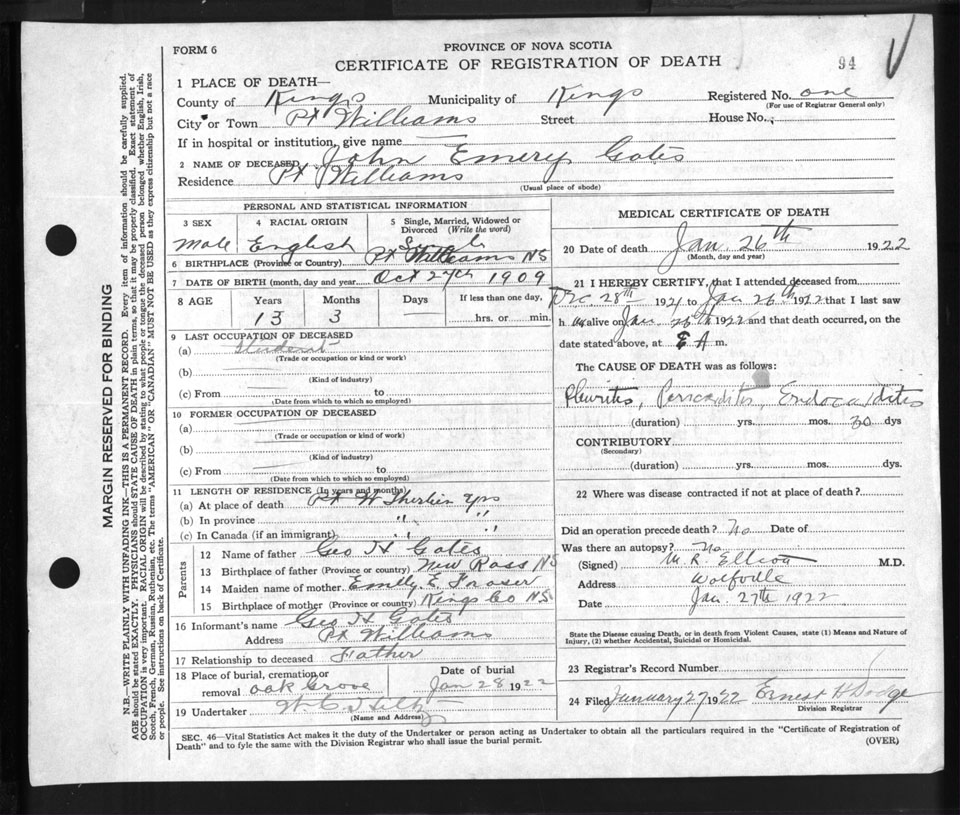 FORM 6
PROVINCE OF NOVA SCOTIA
CERTIFICATE OF REGISTRATION OF DEATH
94
1 PLACE OF DEATH—
County of Kings Municipality of Kings Registered No. one
(For use of Registrar General only)
City or Town Pt Williams Street House No.
If in hospital or institution, give name
2 NAME OF DECEASED John Emery Gates
Residence Pt Williams
(Usual place of abode)
PERSONAL AND STATISTICAL INFORMATION
3 SEX 4 RACIAL ORIGIN 5 Single, Married, Widowed or Divorced (Write the word)
Male English Single
6 BIRTHPLACE (Province or Country) Pt Williams NS
7 DATE OF BIRTH (month, day and year) Oct 27th 1909
8 AGE Years Months Days If less than one day,
13 3 hrs. or min.
9 LAST OCCUPATION OF DECEASED
(a) Student
(Trade or occupation or kind of work)
(b)
(Kind of industry)
(c) From to
(Date from which to which so employed)
10 FORMER OCCUPATION OF DECEASED
(a)
(Trade or occupation or kind of work)
(b)
(Kind of industry)
(c) From to
(Date from which to which so employed)
11 LENGTH OF RESIDENCE (In years and months)
(a) At place of death Pt W yrs
(b) In province " "
(c) In Canada (if an immigrant) " "
Parents
12 Name of father Geo H Gates
13 Birthplace of father (Province or country) New Ross NS
14 Maiden name of mother Emily E. Fraser
15 Birthplace of mother (Province or country) Kings Co NS
16 Informant's name Geo H Gates
Address Pt Williams
17 Relationship to deceased Father
18 Place of burial, cremation or removal Oak Grove Date of burial Jan 28 1922
19 Undertaker
(Name and Address)
MEDICAL CERTIFICATE OF DEATH
20 Date of death Jan 26th 1922
(Month, day and year)
21 I HEREBY CERTIFY, that I attended deceased from
Dec. 28th 1921 to Jan 26th 1922 that I last saw
h alive on Jan 1922 and that death occurred, on the
date stated above, at A m.
The CAUSE OF DEATH was as follows:
Pleuritis, Pericarditis, Endocarditis
(duration) yrs. mos. 30 dys
CONTRIBUTORY
(Secondary)
(duration) yrs. mos. dys.
22 Where was disease contracted if not at place of death?
Did an operation precede death? No Date of
Was there an autopsy? No
(Signed) M. R. Elliott M.D.
Address Wolfville
Date Jan. 27th 1922
State the Disease causing Death, or in death from Violent Causes, state (1) Means and Nature of
Injury, (2) whether Accidental, Suicidal or Homicidal.
23 Registrar's Record Number
24 Filed January 27 1922 Ernest H Dodge
Division Registrar
SEC. 46—Vital Statistics Act makes it the duty of the Undertaker or person acting as Undertaker to obtain all the particulars required in the "Certificate of Registration of
Death" and to fyle the same with the Division Registrar who shall issue the burial permit.
(OVER)
MARGIN RESERVED FOR BINDING
N.B.—WRITE PLAINLY WITH UNFADING INK—THIS IS A PERMANENT RECORD. Every item of information should be carefully supplied.
AGE should be stated EXACTLY. PHYSICIANS should STATE CAUSE OF DEATH in plain terms, so that it may be properly classified. Exact statement of
OCCUPATION is very important. RACIAL ORIGIN will be described by stating to what people or tongue the deceased person belonged whether English, Irish,
Scotch, French, German, Russian, Ruthenian, etc. The terms "AMERICAN" OR "CANADIAN" MUST NOT BE USED as they express citizenship but not a race
or people. See instructions on back of Certificate.